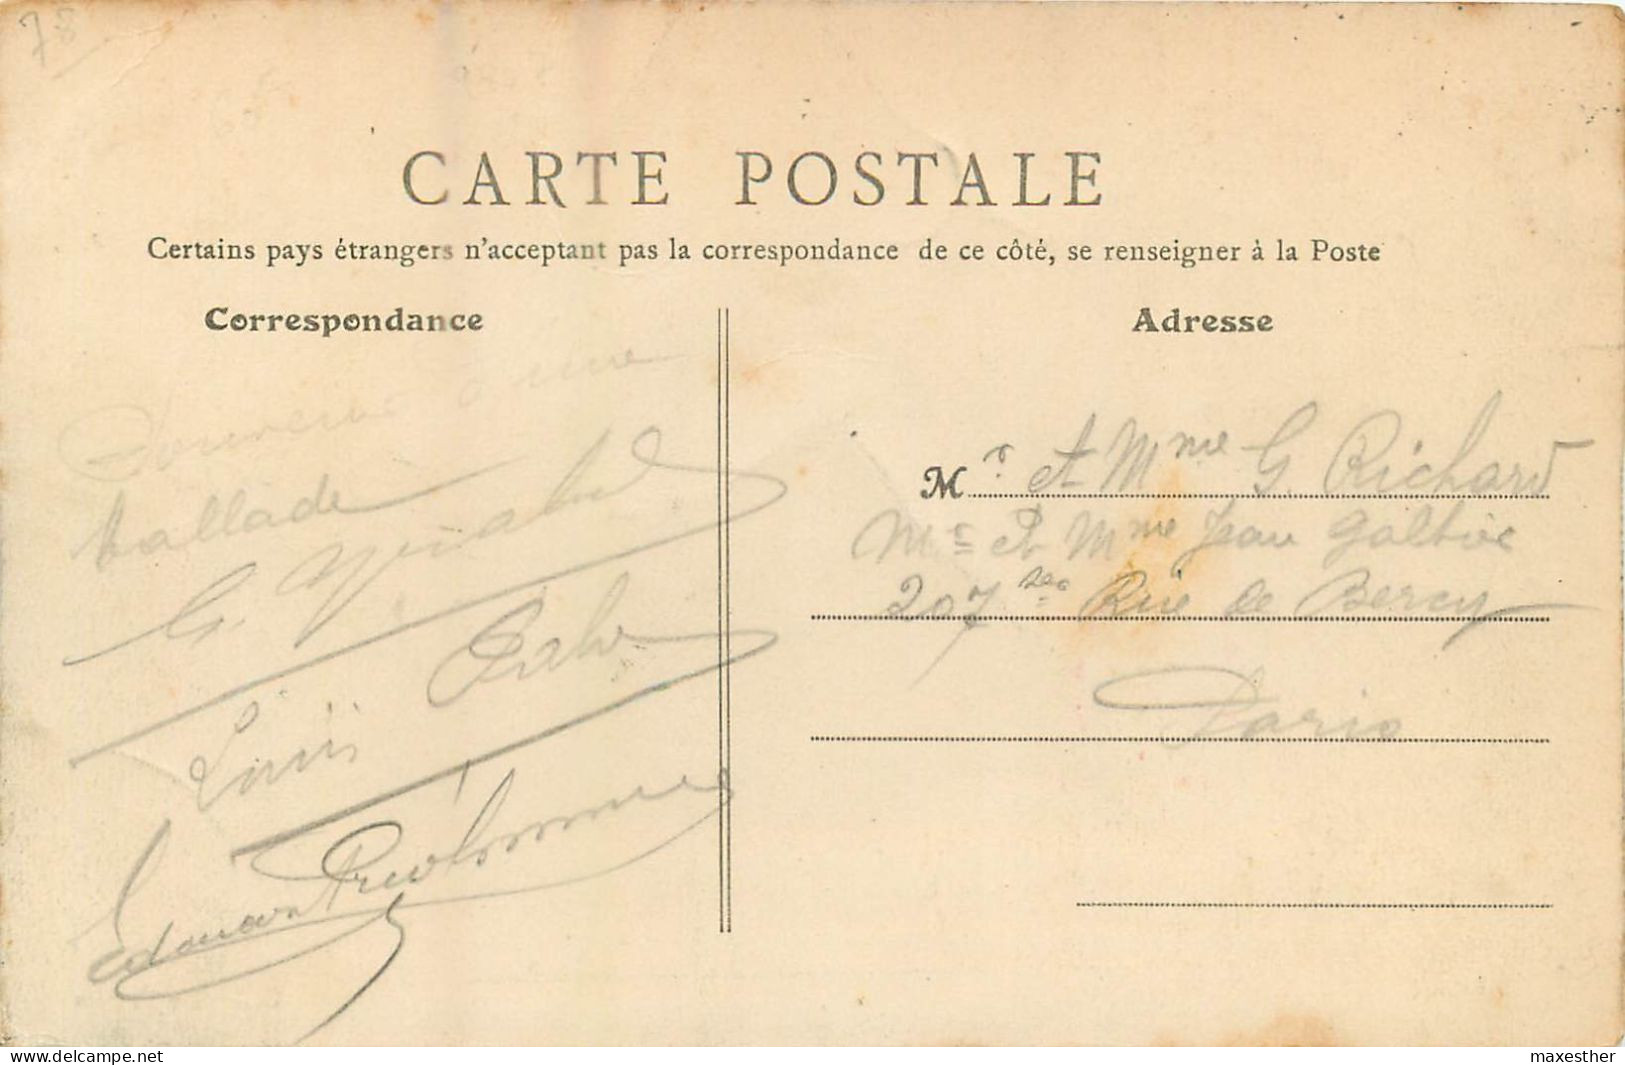 78
CARTE POSTALE
Certains pays étrangers n'acceptant pas la correspondance de ce côté, se renseigner à la Poste
Correspondance
Souvenir d'une
ballade
G.
Louis
Edouard Prudhomme
Adresse
M r et Mme G Richard
Mr et Mme Jean
207 Rue de Bercy
Paris
delcampe.net
maxesther